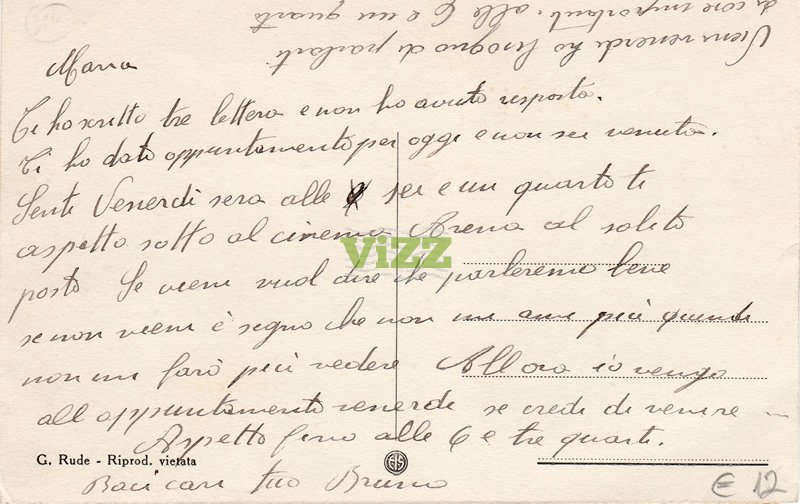 Maria
Ti ho scritto tre lettera e non ho avuto risposta.
Ti ho dato appuntamento per oggi e non sei venuta.
Senti Venerdi sera alle sei e un quarto ti
aspetto sotto al cinema Arena al solito
posto Se vieni vuol dire che parleremo bene
se non vieni è segno che non mi ami più quindi
non mi farò più vedere Allora io vengo
all appuntamento venerdi se credi di venire
Aspetto fino alle 6 e tre quarti.
Baci cari tuo Bruno
Vieni venerdi ho bisogno di parlarti
di cose importanti. alle 6 e un quarto
ViZZ
G. Rude - Riprod. vietata
GS
€ 12
14